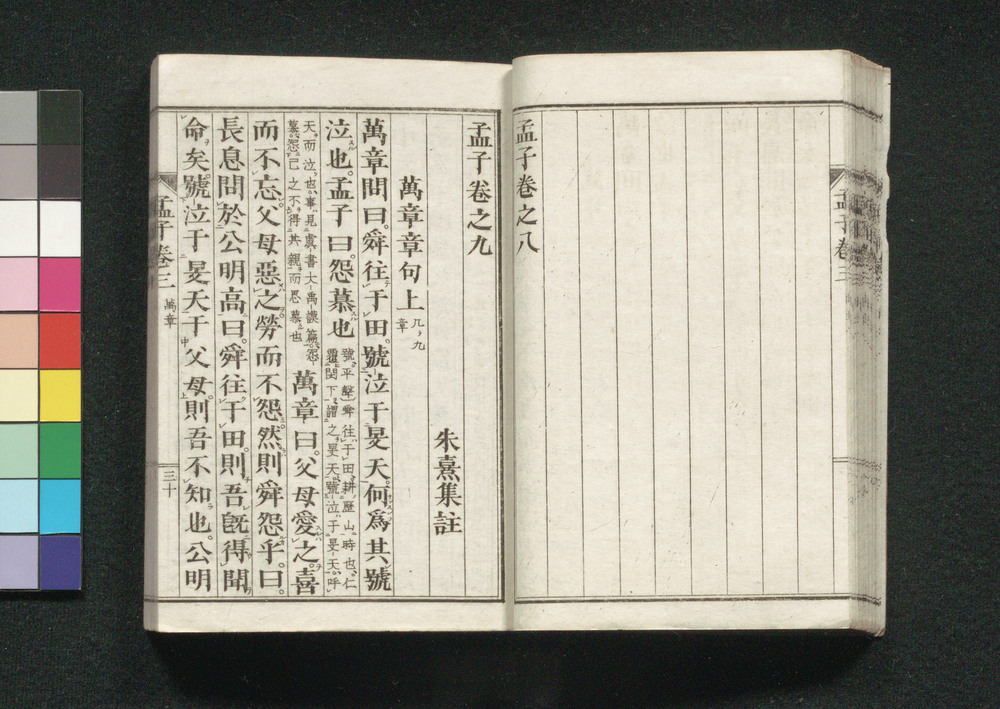 孟子卷之八
孟子卷三
孟子卷之九
朱熹集註
萬章章句上
凡九
章
萬章問曰。舜往于田。號泣于旻天。何爲其號
泣也。孟子曰。怨慕也
號平聲舜往于田耕歷山時也仁
覆閔下謂之旻天號泣于旻天呼
天而泣也事見虞書大禹謨篇怨
慕怨己之不得其親而思慕也
萬章曰。父母愛之。喜
而不忘。父母惡之。勞而不怨。然則舜怨乎。曰。
長息問於公明高曰。舜往于田。則吾旣得聞
命矣。號泣于旻天于父母。則吾不知也。公明
孟子卷三
萬章
三十